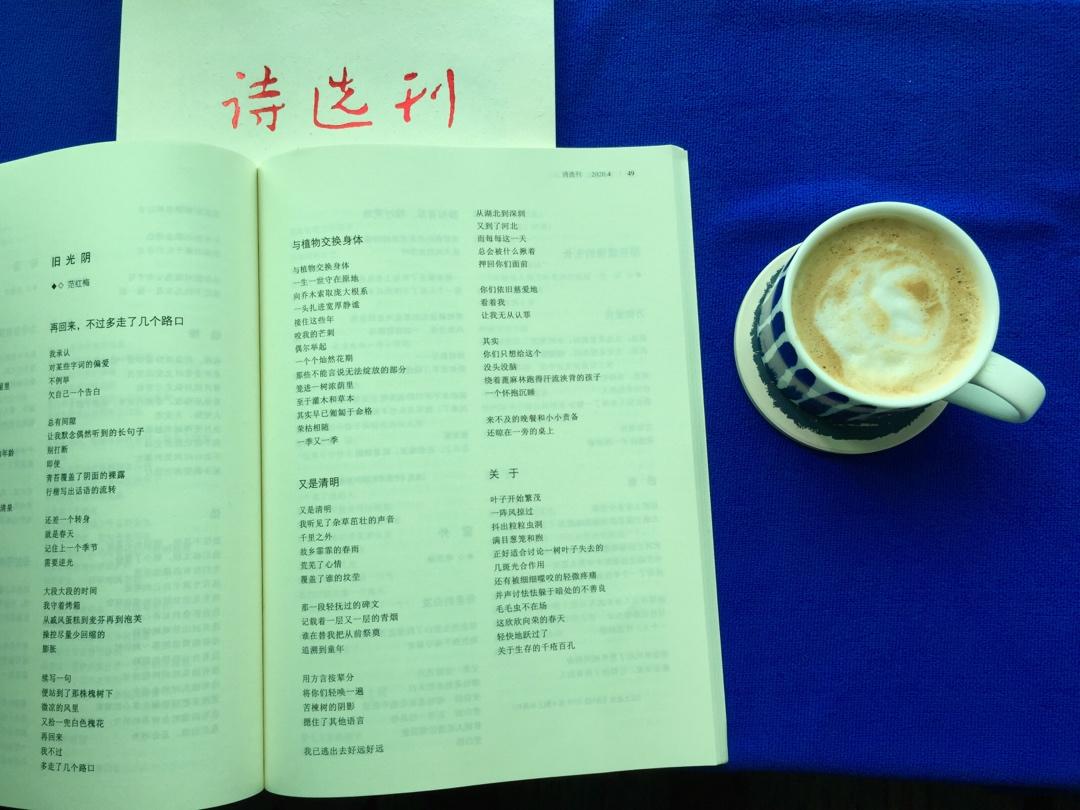 诗选刊
旧光阴
◆◇ 范红梅
再回来，不过多走了几个路口
我承认
对某些字词的偏爱
不例举
欠自己一个告白
总有间隙
让我默念偶然听到的长句子
别打断
即使
青苔覆盖了阴面的裸露
行楷写出话语的流转
还差一个转身
就是春天
记住上一个季节
需要逆光
大段大段的时间
我守着烤箱
从戚风蛋糕到麦芬再到泡芙
操控尽量少回缩的
膨胀
续写一句
便站到了那株槐树下
微凉的风里
又拾一兜白色槐花
再回来
我不过
多走了几个路口
诗选刊 2020.4 49
与植物交换身体
与植物交换身体
一生一世守在原地
向乔木索取庞大根系
一头扎进宽厚静谧
接住这些年
咬我的芒刺
偶尔举起
一个个灿然花期
那些不能言说无法绽放的部分
笼进一树浓荫里
至于灌木和草本
其实早已匍匐于命格
荣枯相随
一季又一季
又是清明
又是清明
我听见了杂草茁壮的声音
千里之外
故乡霏霏的春雨
荒芜了心情
覆盖了谁的坟茔
那一段轻抚过的碑文
记载着一层又一层的青烟
谁在替我把从前祭奠
追溯到童年
用方言按辈分
将你们轻唤一遍
苦楝树的阴影
摁住了其他语言
我已逃出去好远好远
从湖北到深圳
又到了河北
而每每这一天
总会被什么揪着
押回你们面前
你们依旧慈爱地
看着我
让我无从认罪
其实
你们只想给这个
没头没脑
绕着蓖麻林跑得汗流浃背的孩子
一个怀抱沉睡
来不及的晚餐和小小责备
还晾在一旁的桌上
关于
叶子开始繁茂
一阵风掠过
抖出粒粒虫洞
满目葱笼和煦
正好适合讨论一树叶子失去的
几斑光合作用
还有被细细噬咬的轻微疼痛
并声讨怯怯躲于暗处的不善良
毛毛虫不在场
这欣欣向荣的春天
轻快地跃过了
关于生存的千疮百孔